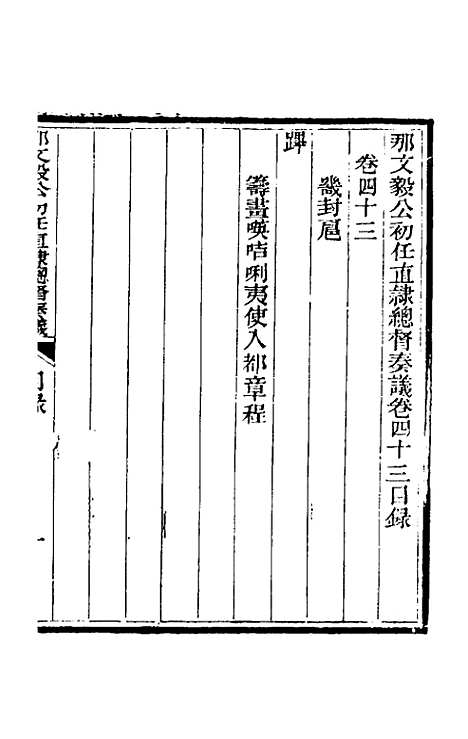 那文毅公初任直隸總督奏議卷四十三目錄
卷四十三
畿封扈
蹕
籌畫𠸄咭唎夷使入都章程
那文毅公初任直隸總督奏議
目錄
一